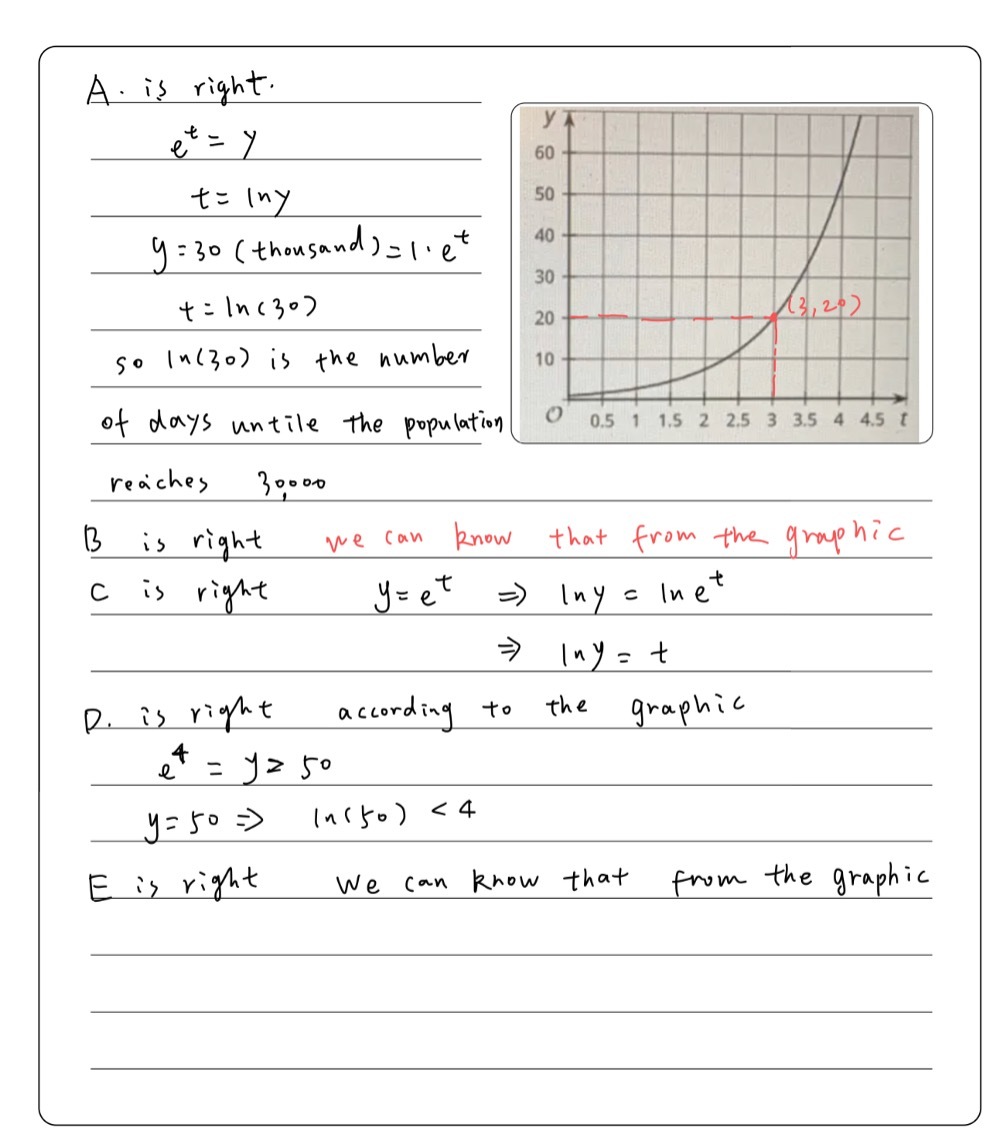 A. is right.
e^t = y
t = lny
y = 30 (thousand) = 1·e^t
t = ln(30)
so ln(30) is the number
of days untile the population
reaches 30,000
y
60
50
40
30
20
10
(3,20)
O 0.5 1 1.5 2 2.5 3 3.5 4 4.5 t
B is right we can know that from the graphic
C is right y = e^t ⇒ lny = lne^t
⇒ lny = t
D. is right according to the graphic
e^4 = y ≥ 50
y = 50 ⇒ ln(50) < 4
E is right We can know that from the graphic